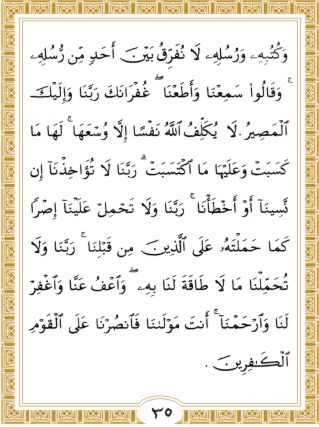 وَكُتُبِهِۦ وَرُسُلِهِۦ لَا نُفَرِّقُ بَيْنَ أَحَدٍ مِّن رُّسُلِهِۦ
ۚ وَقَالُوا۟ سَمِعْنَا وَأَطَعْنَا ۖ غُفْرَانَكَ رَبَّنَا وَإِلَيْكَ
الْمَصِيرُ. لَا يُكَلِّفُ اللَّهُ نَفْسًا إِلَّا وُسْعَهَا ۚ لَهَا مَا
كَسَبَتْ وَعَلَيْهَا مَا اكْتَسَبَتْ ۗ رَبَّنَا لَا تُؤَاخِذْنَآ إِن
نَّسِينَآ أَوْ أَخْطَأْنَا ۚ رَبَّنَا وَلَا تَحْمِلْ عَلَيْنَآ إِصْرًا
كَمَا حَمَلْتَهُۥ عَلَى الَّذِينَ مِن قَبْلِنَا ۚ رَبَّنَا وَلَا
تُحَمِّلْنَا مَا لَا طَاقَةَ لَنَا بِهِۦ ۖ وَٱعْفُ عَنَّا وَٱغْفِرْ
لَنَا وَٱرْحَمْنَآ ۚ أَنتَ مَوْلَىٰنَا فَٱنصُرْنَا عَلَى الْقَوْمِ
الْكَٰفِرِينَ .
٣٥